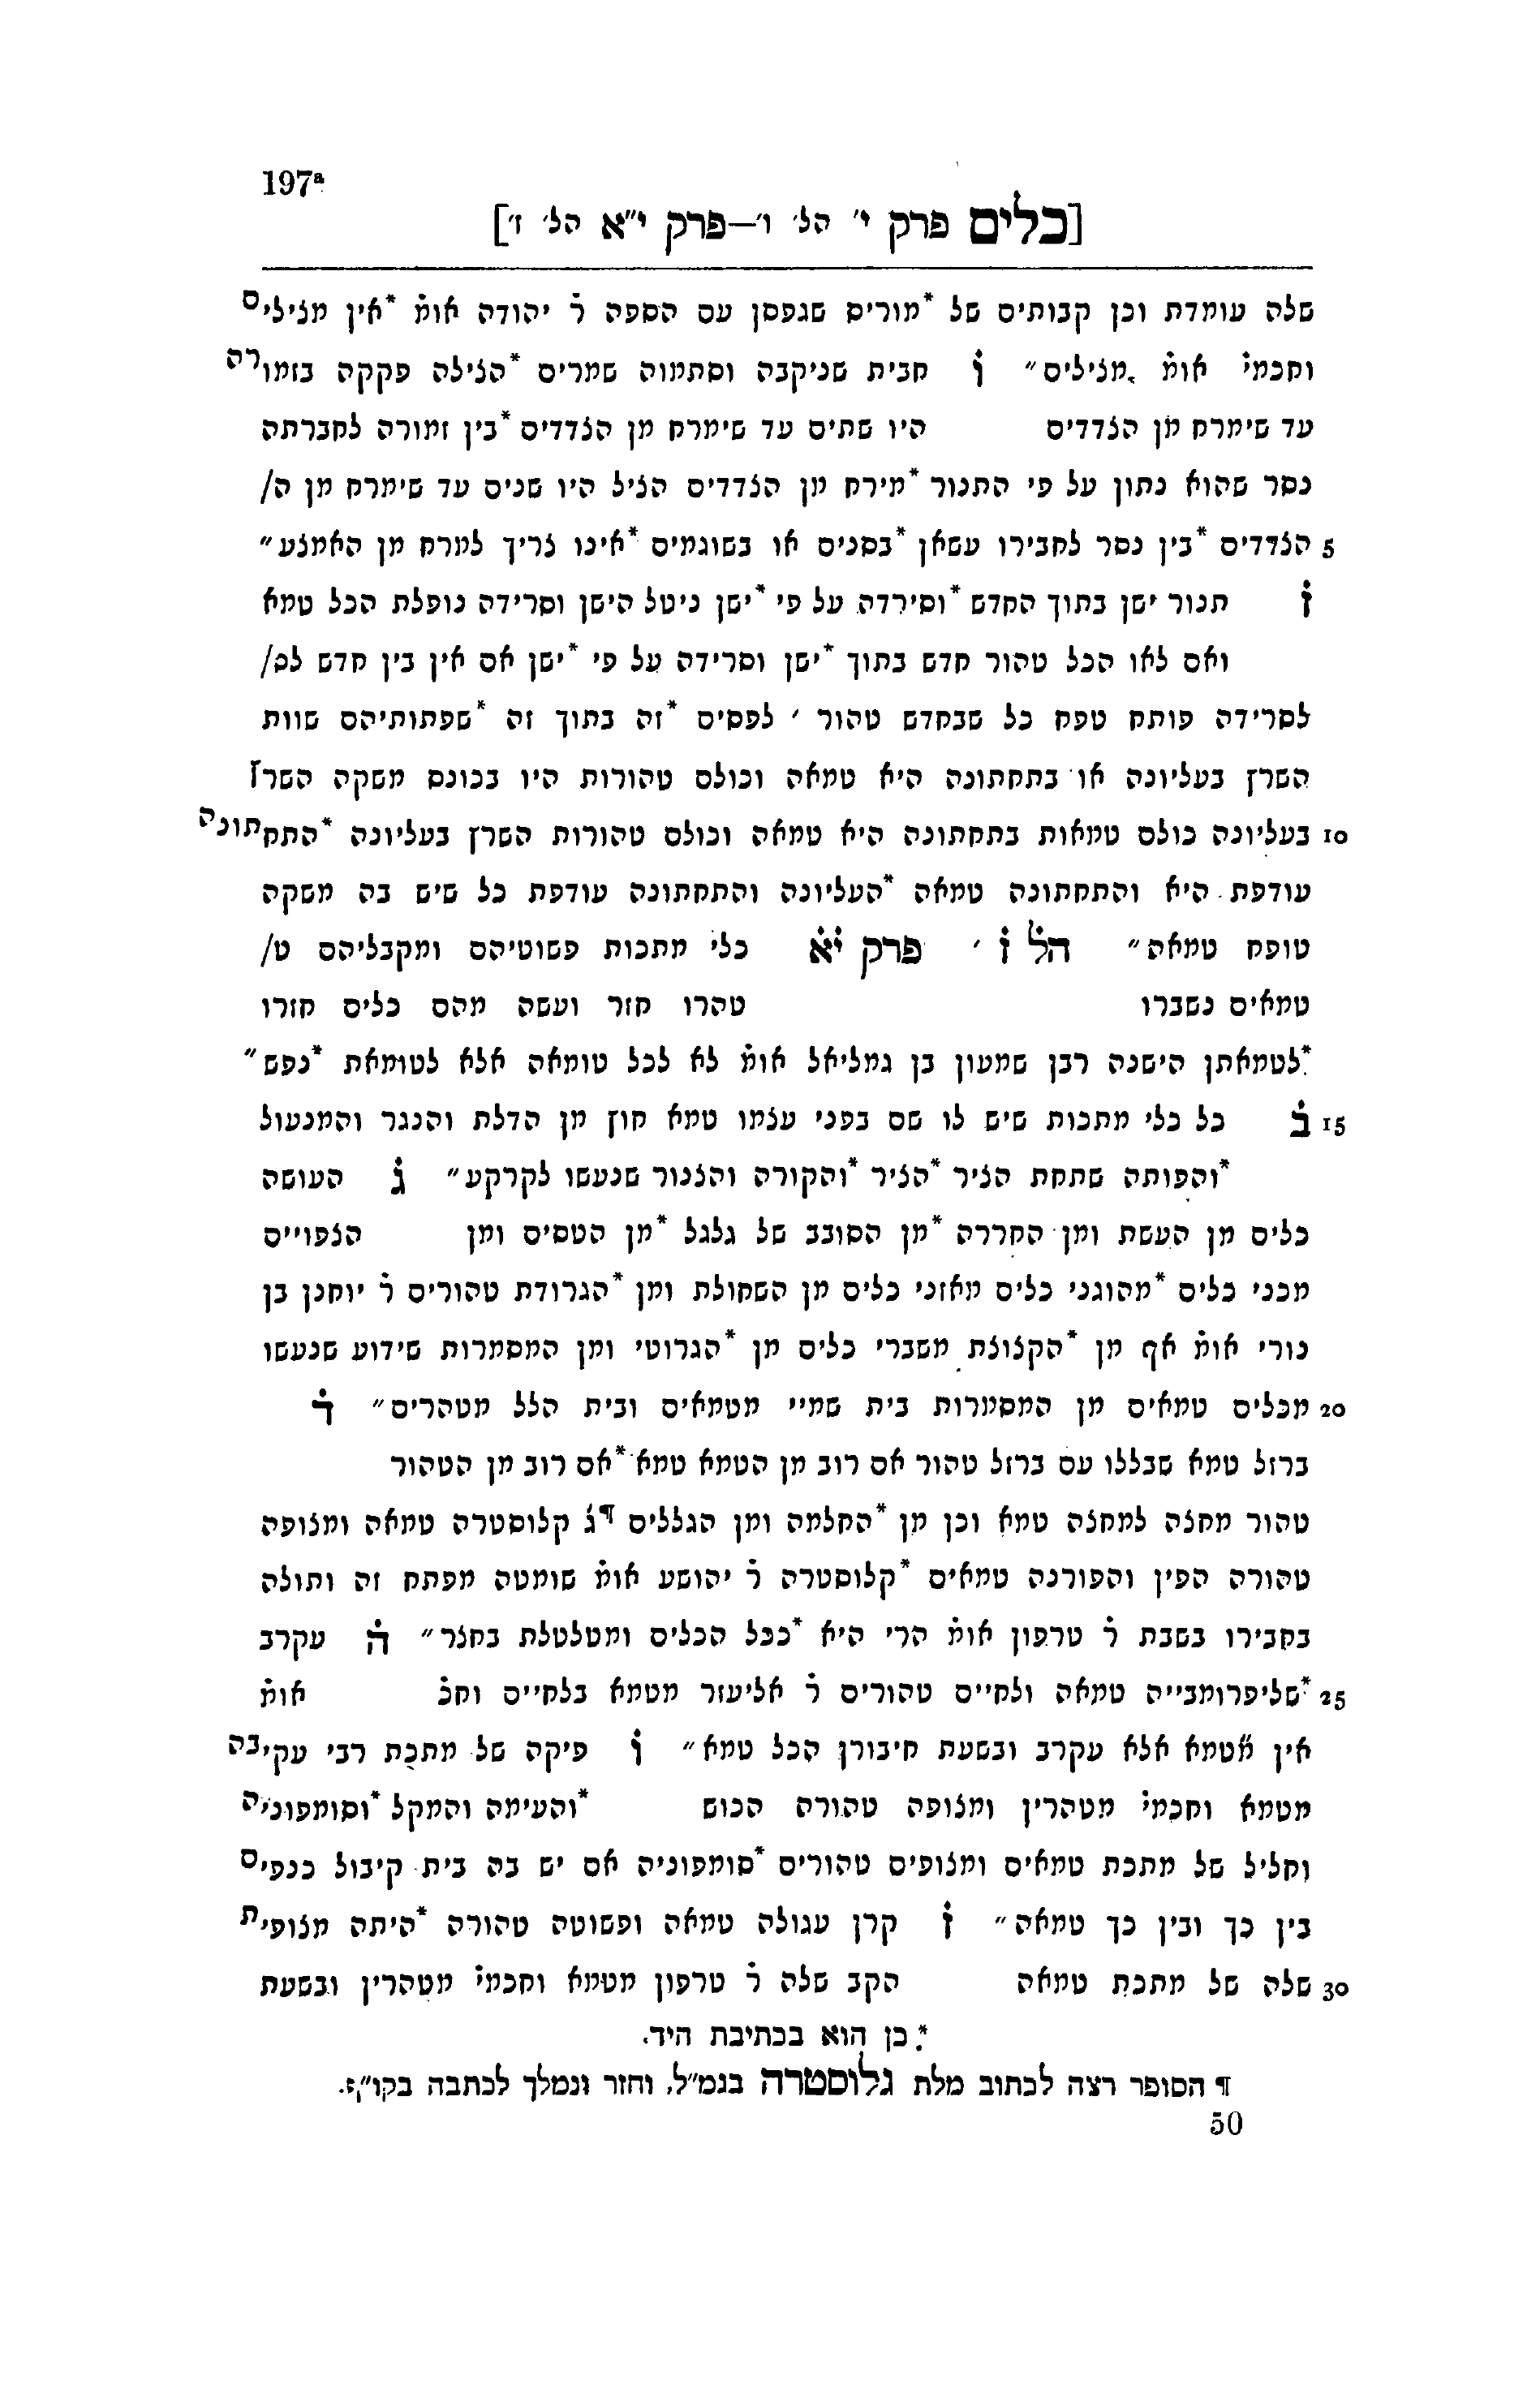 197ª
[כלים פרק י׳ הל׳ ו׳—פרק י״א הל׳ ז׳]
שלה עומדת וכן קבותים של *מוריס שגפסן עם הספה ר̇ יהודה אומ̇ *אין מצילים
וחכמי̇ אומ̇ מצילים״ ו̇ חבית שניקבה וסתמוה שמרים *הצילה פקקה בזמורה
עד שימרח מן הצדדים היו שתים עד שימרח מן הצדדים *בין זמורה לחברתה
נסר שהוא נתון על פי התנור *מירח מן הצדדים הציל היו שנים עד שימרח מן ה/
5 הצדדים *בין נסר לחבירו עשאן *בסנים או בשוגמים *אינו צריך למרח מן האמצע״
ז̇ תנור ישן בתוך החדש *וסירדה על פי *ישן ניטל הישן וסרידה נופלת הכל טמא
ואם לאו הכל טהור חדש בתוך *ישן וסרידה על פי *ישן אם אין בין חדש לס/
לסרידה פותח טפח כל שבחדש טהור ׳ לפסים *זה בתוך זה *שפתותיהם שוות
השרץ בעליונה או בתחתונה היא טמאה וכולם טהורות היו בכונס משקה השרץ
10 בעליונה כולם טמאות בתחתונה היא טמאה וכולם טהורות השרץ בעליונה *התחתונה
עודפת היא והתחתונה טמאה *העליונה והתחתונה עודפת כל שיש בה משקה
טופח טמאה״ הל̇ ז̇ ׳ פרק י̇א̇ כלי מתכות פשוטיהם ומקבליהם ט/
טמאים נשברו טהרו חזר ועשה מהם כלים חזרו
*לטמאתן הישנה רבן שמעון בן גמליאל אומ̇ לא לכל טומאה אלא לטומאת *נפש״
15 ב̇ כל כלי מתכות שיש לו שם בפני עצמו טמא חוץ מן הדלת והנגר והמנעול
*והפותה שתחת הציר *הציר *והקורה והצנור שנעשו לקרקע״ ג̇ העושה
כלים מן העשת ומן החררה *מן הסובב של גלגל *מן הטסים ומן הצפויים
מכני כלים *מהוגני כלים מאזני כלים מן השחולת ומן *הגרודת טהורים ר̇ יוחנן בן
נורי אומ̇ אף מן *הקצוצת משברי כלים מן *הגרוטי ומן המסמרות שידוע שנעשו
20 מכלים טמאים מן המסמרות בית שמיי מטמאים ובית הלל מטהרים״ ד̇
ברזל טמא שבללו עם ברזל טהור אם רוב מן הטמא טמא *אם רוב מן הטהור
טהור מחצה למחצה טמא וכן מן *החלמה ומן הגללים ¶ג̇ קלוסטרה טמאה ומצופה
טהורה הפין והפורנה טמאים *קלוסטרה ר̇ יהושע אומ̇ שומטה מפתח זה ותולה
בחבירו בשבת ר̇ טרפון אומ̇ הרי היא *ככל הכלים ומטלטלת בחצר״ ה̇ עקרב
25 *שליפרומבייה טמאה ולחיים טהורים ר̇ אליעזר מטמא בלחיים וחכ̇ אומ̇
אין מטמא אלא עקרב ובשעת חיבורן הכל טמא״ ו̇ פיקה של מתכת רבי עקיבה
מטמא וחכמי̇ מטהרין ומצופה טהורה הכוש *והעימה והמקל *וסומפוניה
וחליל של מתכת טמאים ומצופים טהורים *סומפוניה אם יש בה בית קיבול כנפים
בין כך ובין כך טמאה״ ז̇ קרן עגולה טמאה ופשוטה טהורה *היתה מצופית
30 שלה של מתכת טמאה הקב שלה ר̇ טרפון מטמא וחכמי̇ מטהרין ובשעת
* כן הוא בכתיבת היד.
¶ הסופר רצה לכתוב מלת גלוסטרה בגמ״ל, וחזר ונמלך לכתבה בקו״ף.
50